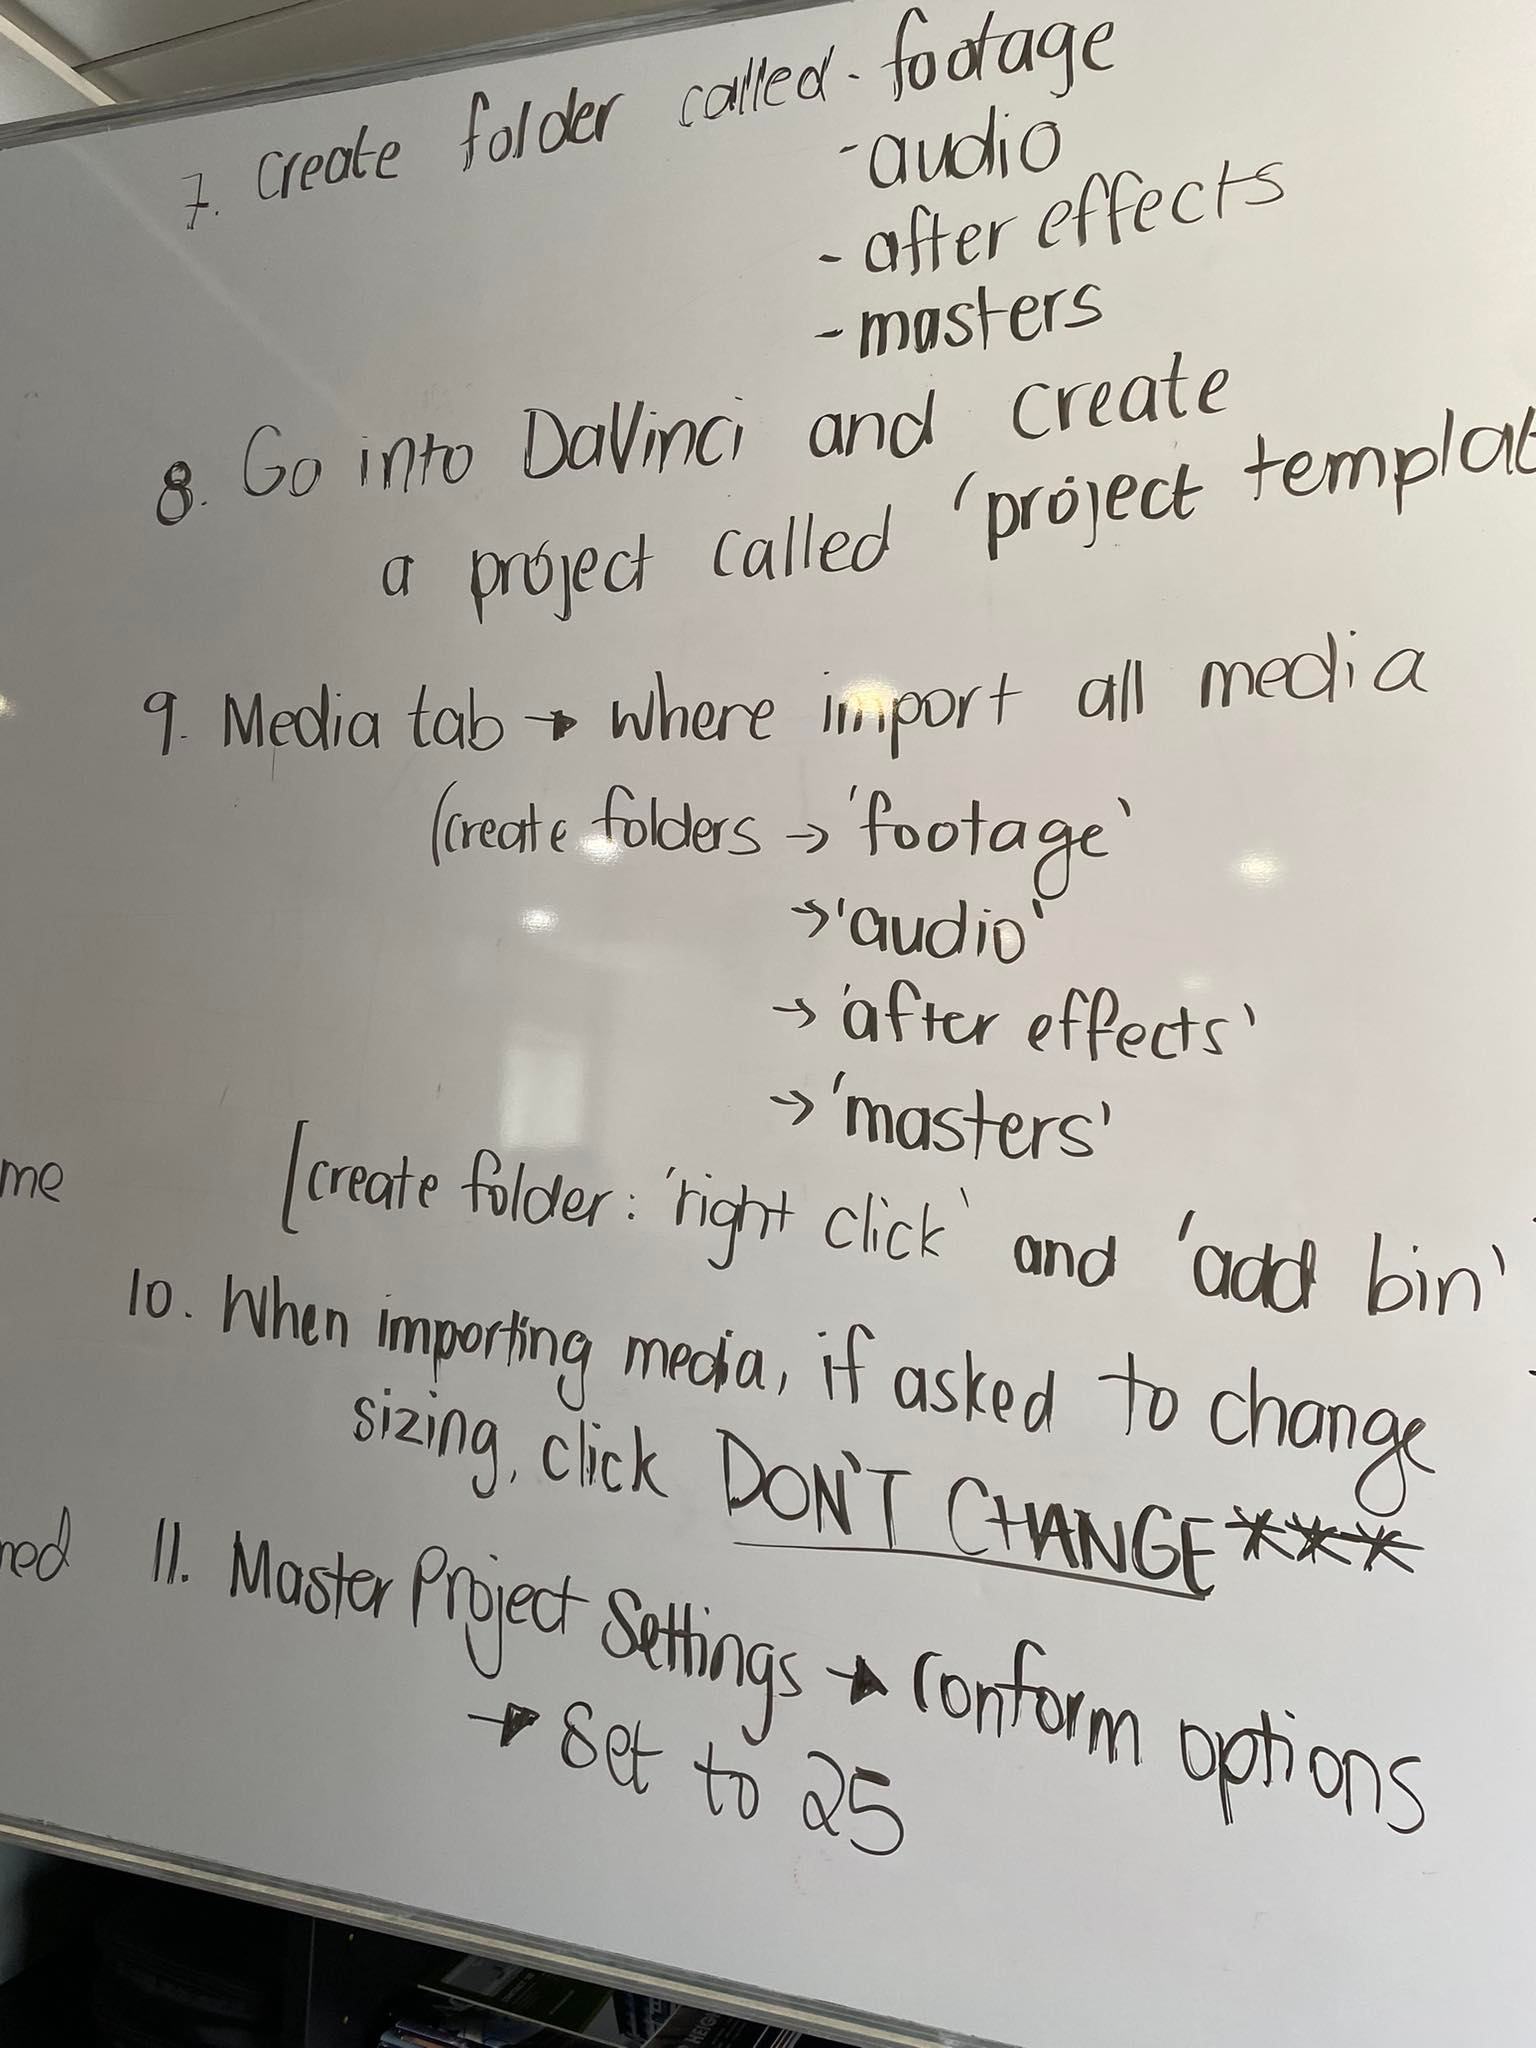 7. Create folder called - footage
- audio
- after effects
- masters
8. Go into DaVinci and create
a project called 'project templat
9. Media tab → where import all media
(create folders → 'footage'
→ 'audio'
→ 'after effects'
→ 'masters'
[create folder: 'right click' and 'add bin'
10. When importing media, if asked to change
sizing, click DON'T CHANGE***
11. Master Project Settings → conform options
→ Set to 25
me